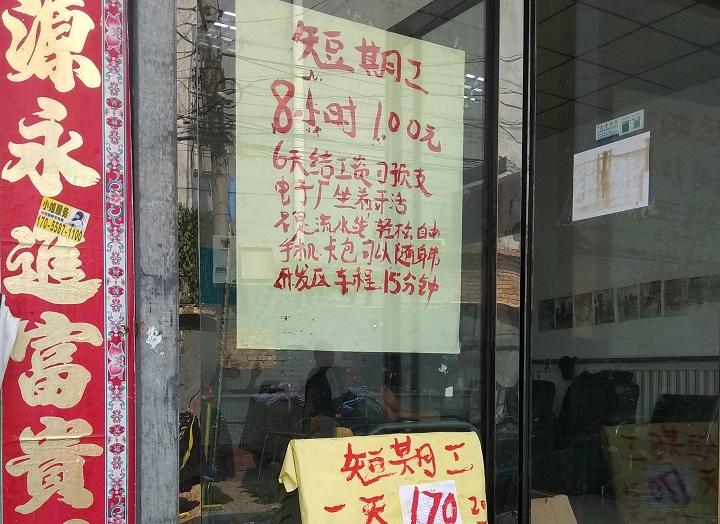 源永進富貴
170-5587-1100
短期工
8小时 100元
6天结工资可预支
电子厂坐着干活
不是流水线 轻松自由
手机.卡包可以随身带
开发区 车程15分钟
短期工
一天 170